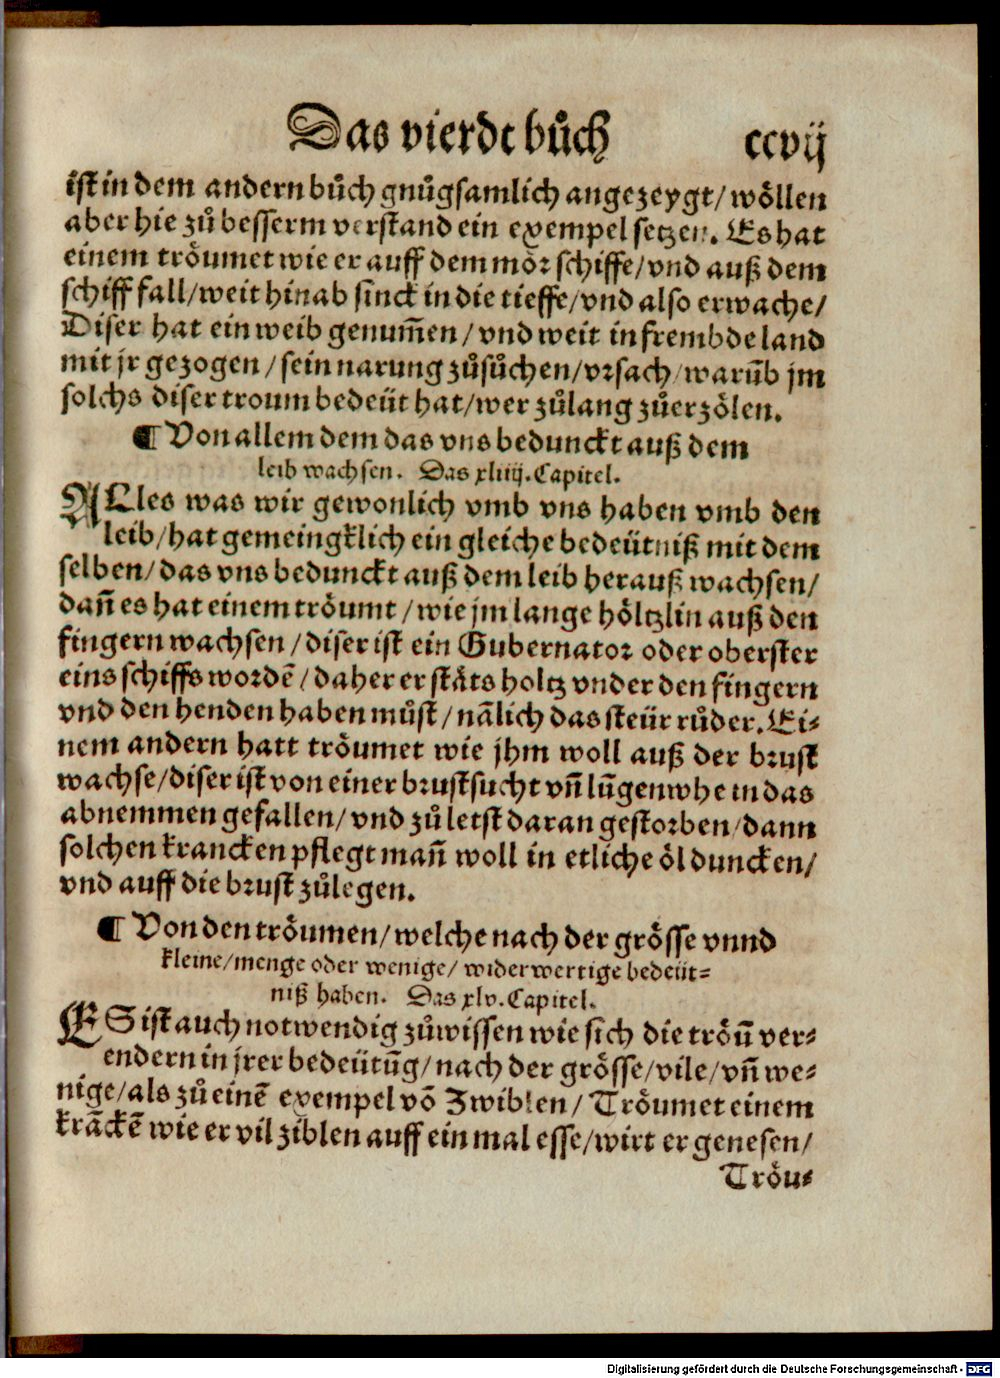 Das vierdt bůch ccvij
ist in dem andern bůch gnůgsamlich angezeygt/ wöllen
aber hie zů besserm verstand ein exempel setzen. Es hat
einem tröumet wie er auff dem mör schiffe/ vnd auß dem
schiff fall/ weit hinab sinck in die tieffe/ vnd also erwache/
Diser hat ein weib genum̃en/ vnd weit in frembde land
mit jr gezogen/ sein narung zůsůchen/ vrsach/ warũb jm
solchs diser troum bedeüt hat/ wer zůlang zůerzölen.
¶ Von allem dem das vns bedunckt auß dem
leib wachsen. Das xliiij. Capitel.
ALles was wir gewonlich vmb vns haben vmb den
leib/ hat gemeingklich ein gleiche bedeütniß mit dem
selben/ das vns bedunckt auß dem leib herauß wachsen/
dañ es hat einem tröumt/ wie jm lange höltzlin auß den
fingern wachsen/ diser ist ein Gubernator oder oberster
eins schiffs wordẽ/ daher er stäts holtz vnder den fingern
vnd den henden haben můst/ nãlich das steür růder. Ei⸗
nem andern hatt tröumet wie jhm woll auß der brust
wachse/ diser ist von einer brustsucht vñ lũgenwhe in das
abnemmen gefallen/ vnd zů letst daran gestorben/ dann
solchen krancken pflegt mañ woll in etliche öl duncken/
vnd auff die brust zůlegen.
¶ Von den tröumen/ welche nach der grösse vnnd
kleine/ menge oder wenige/ widerwertige bedeüt⸗
niß haben. Das xlv. Capitel.
ES ist auch notwendig zůwissen wie sich die tröũ ver⸗
endern in jrer bedeütũg/ nach der grösse/ vile/ vñ we⸗
nige/ als zů einẽ exempel võ Zwiblen/ Tröumet einem
krãckẽ wie er vil ziblen auff ein mal esse/ wirt er genesen/
Tröu⸗
Digitalisierung gefördert durch die Deutsche Forschungsgemeinschaft - DFG